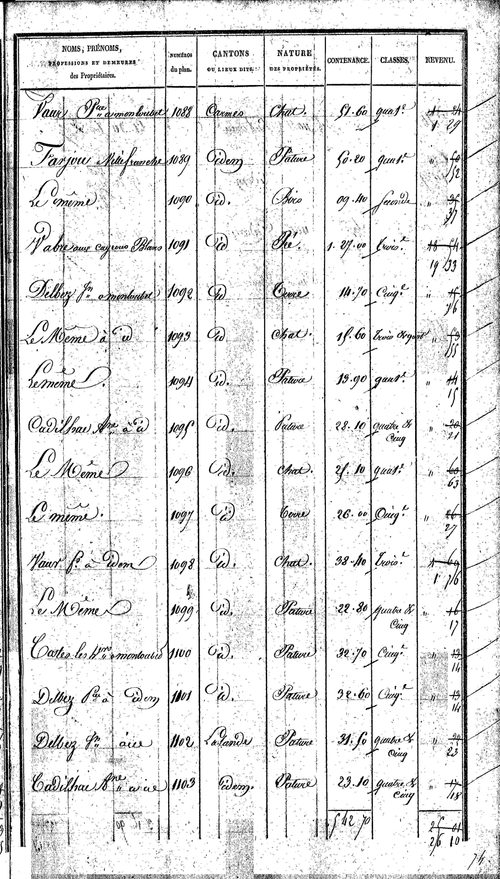 NOMS, PRÉNOMS, PROFESSIONS ET DEMEURES des Propriétaires. NUMÉROS du plan. CANTONS OU LIEUX DITS. NATURE DES PROPRIÉTÉS. CONTENANCE. CLASSES. REVENU.
Vaur Pre a montoubet 1088 Carmes Chat. 51.60 quatr.e 1 29
Farjou Villefranche 1089 idem Pature 50.20 quatr.e " 52
Le même 1090 id. Bois 09.40 Seconde " 37
Vabre aux cayrous Blancs 1091 id Pré 1.27.00 trois.e 19 33
Delbez Jn a montoubet 1092 id Terre 14.70 Cinq.e " 16
Le Même à id 1093 id Chat. 15.60 trois & quatr " 55
Le même 1094 id. Pature 13.90 quatr.e " 15
Cadilhac Ane à id 1095 id. Pature 28.10 quatre & Cinq " 21
Le Même 1096 id. chat. 25.10 quatr.e " 63
Le même. 1097 id Terre 26.00 Cinq.e " 27
Vaur f.s à idem 1098 id. Chat. 38.40 trois.e 1 76
Le Même 1099 id. Pature 22.80 quatre & Cinq " 17
Carles les hers a montoubet 1100 id. Pature 32.70 Cinq.e " 14
Delbez Pre à idem 1101 id. Pature 32.60 Cinq.e " 14
Delbez Jn à id 1102 La Lande Pature 31.50 quatre & Cinq " 23
Cadilhac Ane à id 1103 idem. Pature 23.10 quatre & Cinq " 18
5 42 70 25 01
26 10
74